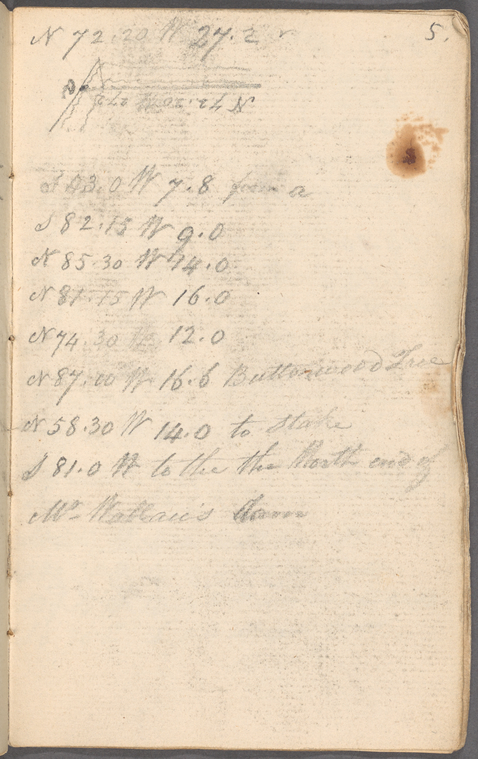 5.
N 72.20 W 27.2
N 72.20 W 27.2
S 43.0 W 7.8 from a
S 82.15 W 9.0
N 85.30 W 14.0
N 81.15 W 16.0
N 74.30 W 12.0
N 87.00 W 16.6 Buttonwood Tree
N 58.30 W 14.0 to Stake
S 81.0 W to the the North end of
Mr. Wallace's